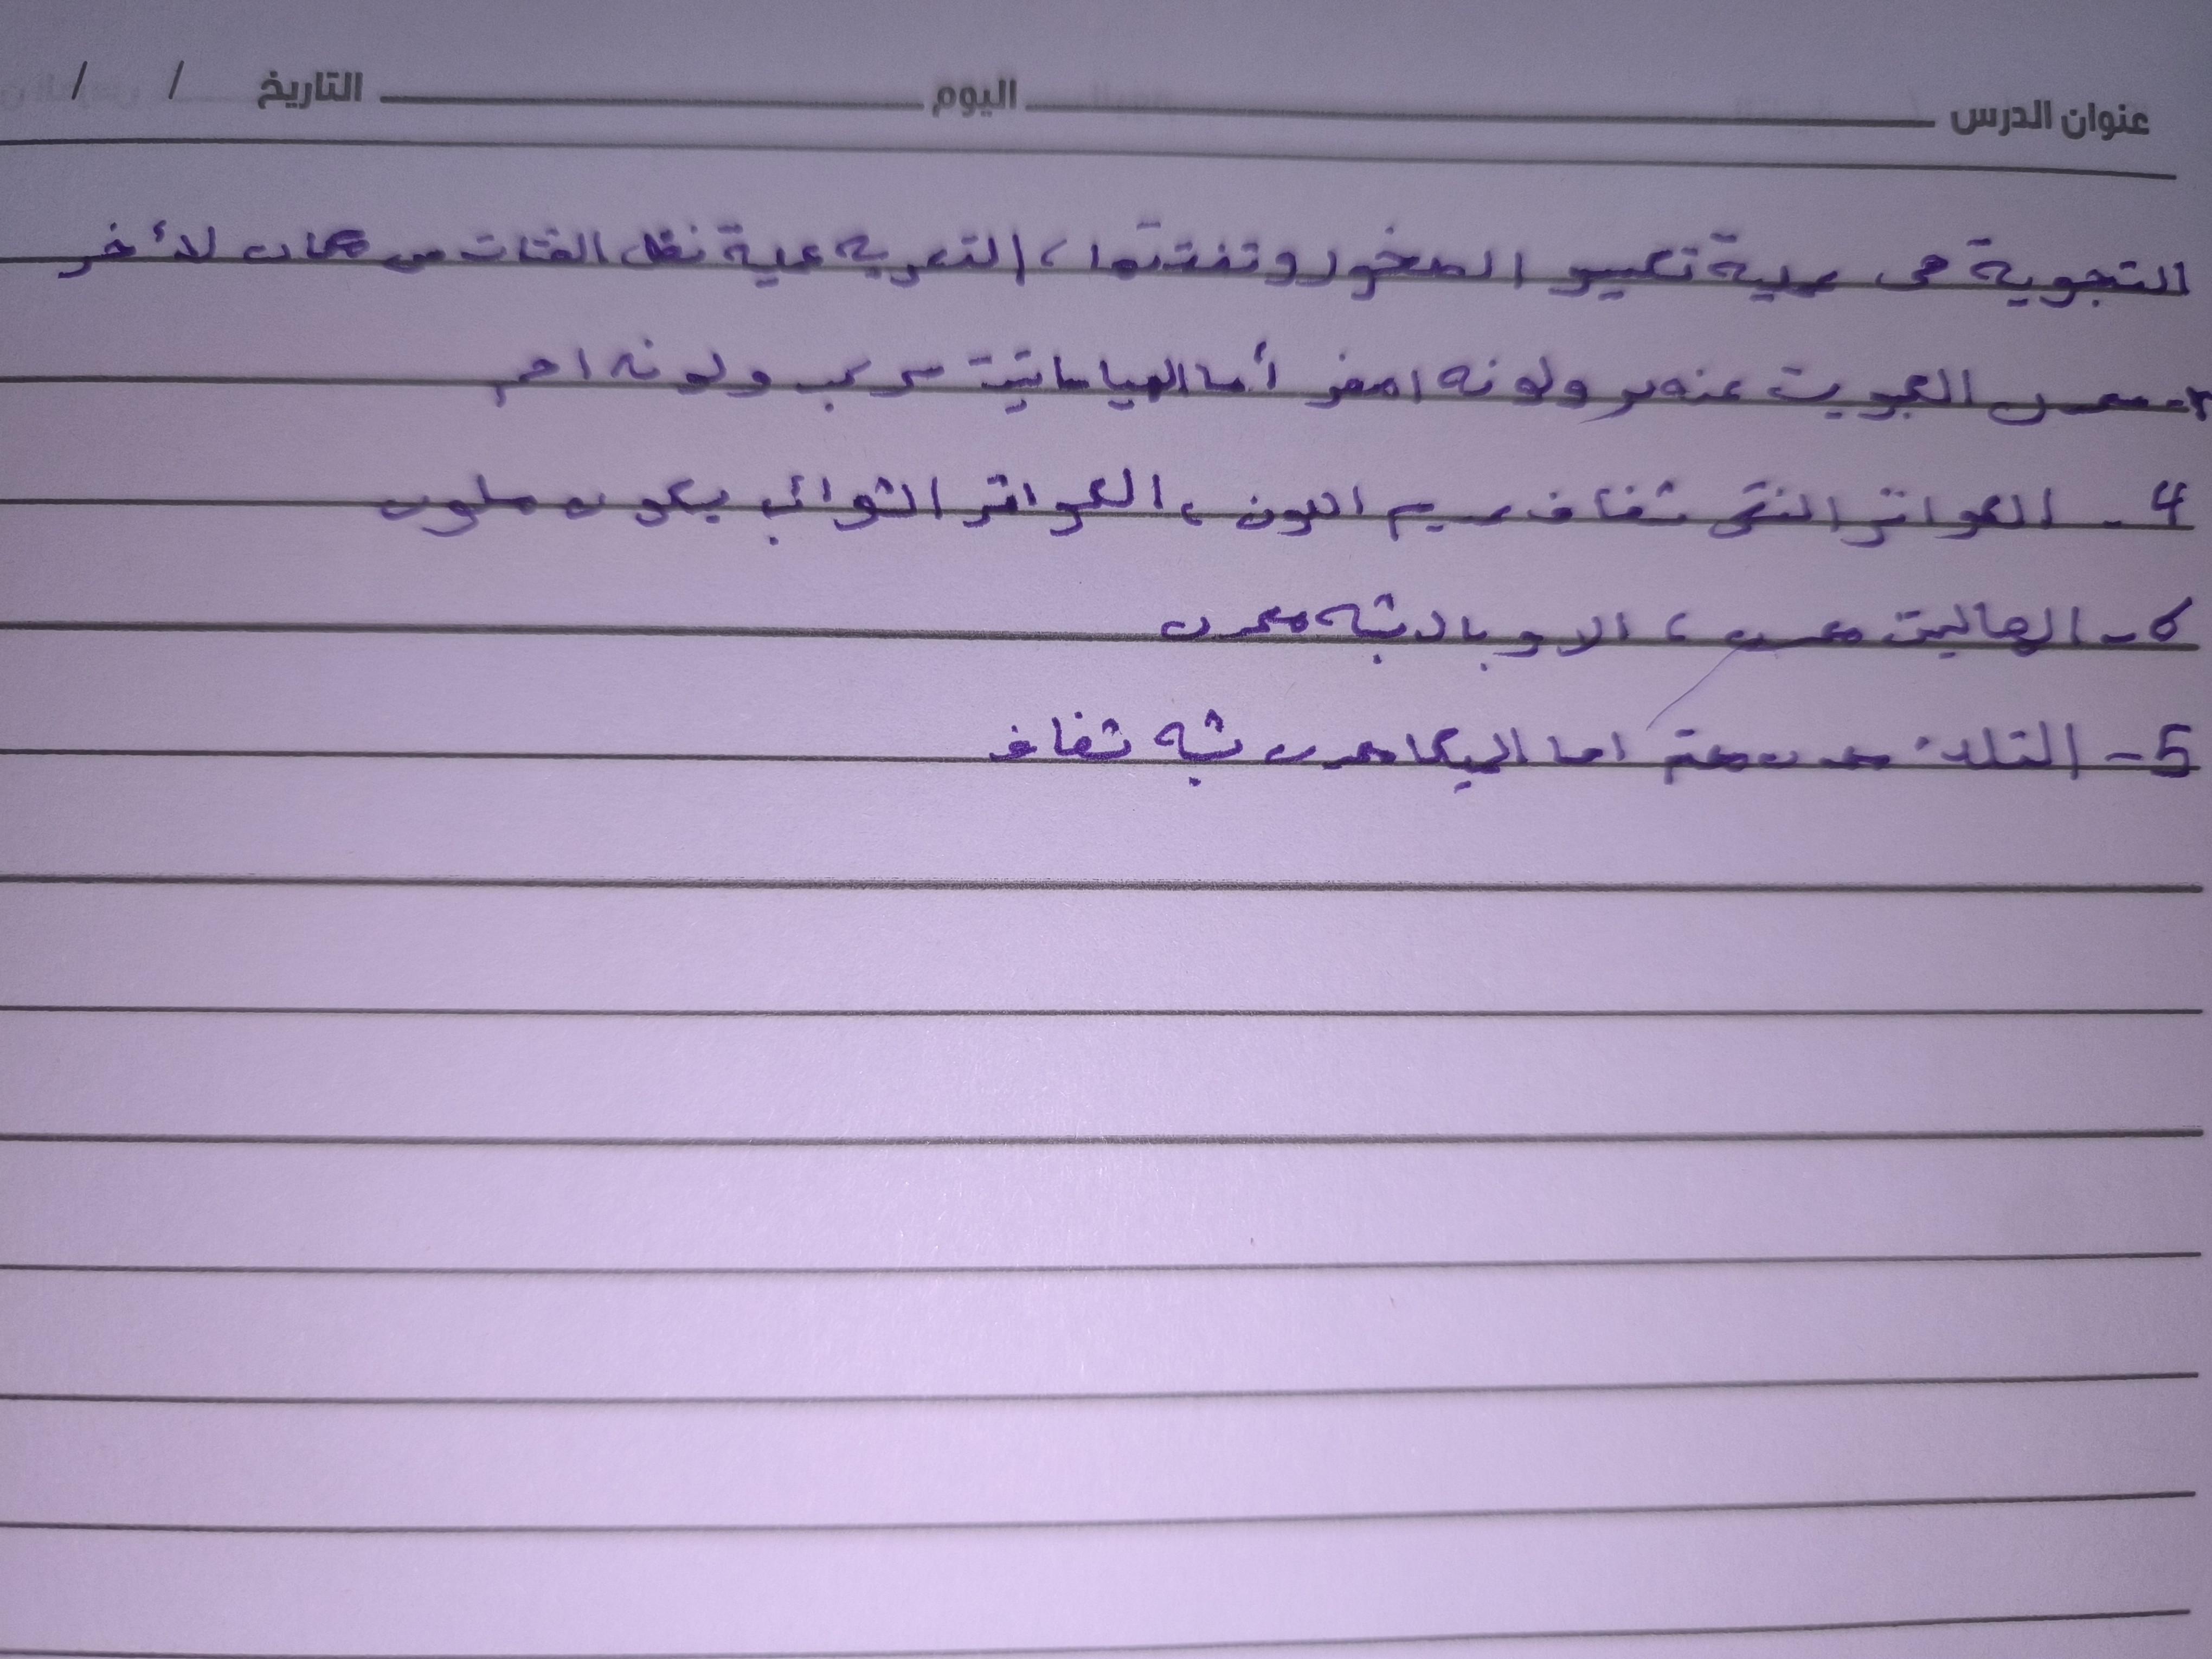 عنوان الدرس اليوم التاريخ / /
التجوية هى عملية تكسير الصخور وتفتتها ، التعريه عملية نقل الفتات من مكان لأخر
معدن الكبريت عنصر ولونه اصفر أما الهيماتيت مركب ولونه احمر
4 - الكواتز النقى شفاف عديم اللون ، الكواتز الشوائب يكون ملون
6 - الهاليت معدن ، الاوبال شبه معدن
5 - التلك معدن معتم اما الميكا معدن شبه شفاف